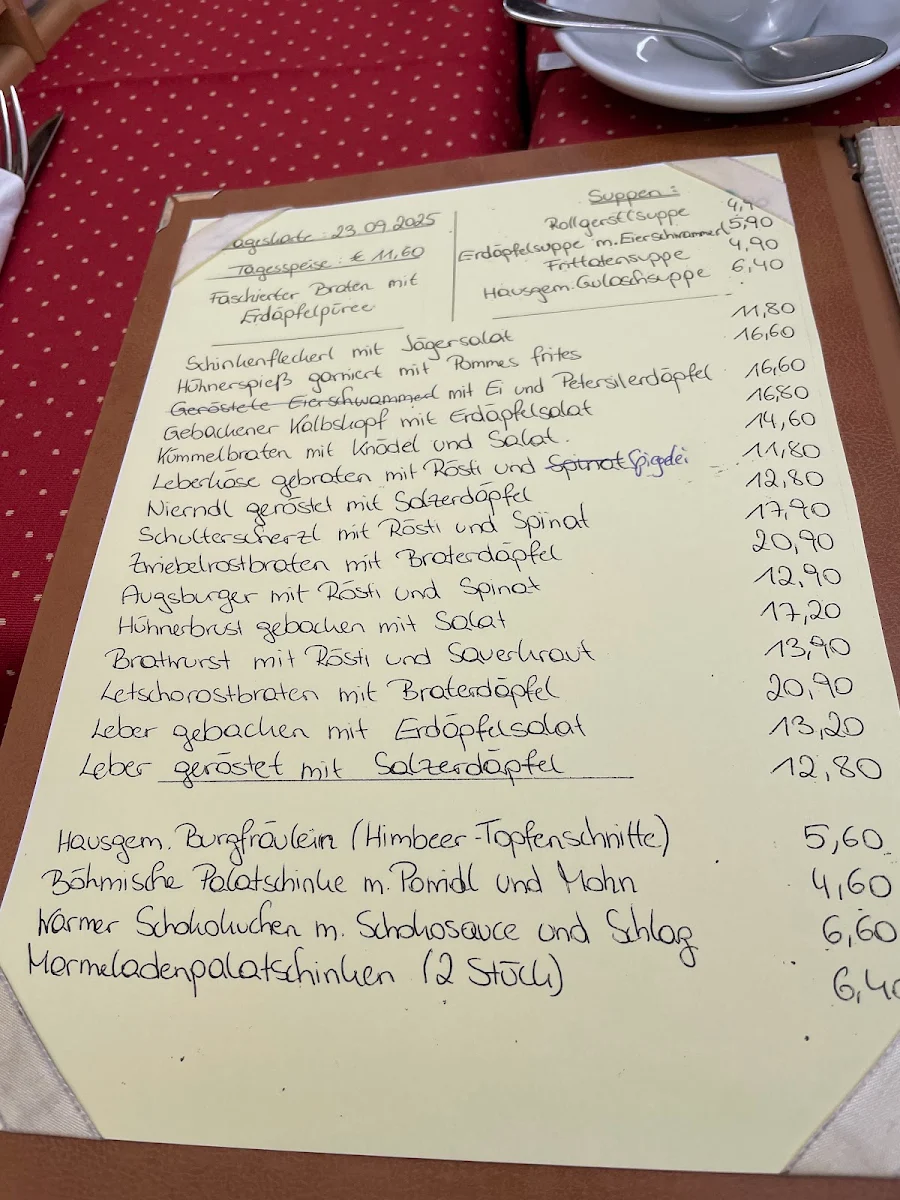 Tageskarte : 23.09.2025
Tagesspeise : € 11,60
Faschierter Braten mit
Erdäpfelpüree
Suppen :
Rollgerstlsuppe 4,90
Erdäpfelsuppe m. Eierschwammerl 5,90
Frittatensuppe 4,90
Hausgem. Gulaschsuppe 6,40
Schinkenfleckerl mit Jägersalat 11,80
Hühnerspieß garniert mit Pommes frites 16,60
Geröstete Eierschwammerl mit Ei und Petersilerdäpfel 16,60
Gebackener Kalbskopf mit Erdäpfelsalat 16,80
Kümmelbraten mit Knödel und Salat. 14,60
Leberkäse gebraten mit Rösti und Spinat Spiegelei 11,80
Nierndl geröstet mit Salzerdäpfel 12,80
Schulterscherzl mit Rösti und Spinat 17,90
Zwiebelrostbraten mit Braterdäpfel 20,90
Augsburger mit Rösti und Spinat 12,90
Hühnerbrust gebacken mit Salat 17,20
Bratwurst mit Rösti und Sauerkraut 13,90
Letschorostbraten mit Braterdäpfel 20,90
Leber gebacken mit Erdäpfelsalat 13,20
Leber geröstet mit Salzerdäpfel 12,80
Hausgem. Burgfräulein (Himbeer-Topfenschnitte) 5,60
Böhmische Palatschinke m. Powidl und Mohn 4,60
Warmer Schokokuchen m. Schokosauce und Schlag 6,60
Marmeladenpalatschinken (2 Stück) 6,40